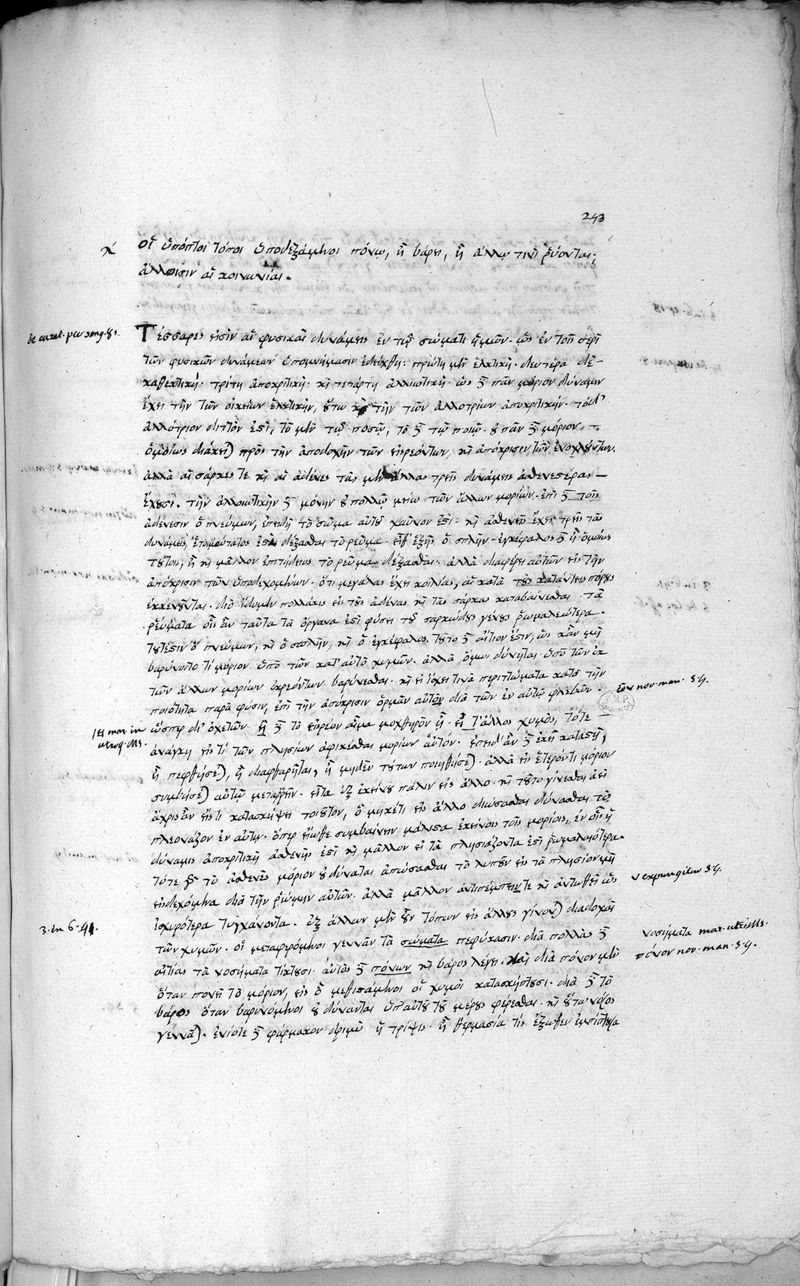 243
οἱ ὕποπτοι τόποι ὑποδεξάμενοι πόνῳ, ἢ βάρει, ἢ ἄλλῳ τινὶ ῥύονται,
ἄλλοισιν αἱ κοινωνίαι.
Τέσσαρες εἰσὶν αἱ φυσικαὶ δυνάμεις ἐν τῷ σώματι ἡμῶν. ὡς ἐν τοῖς περὶ
τῶν φυσικῶν δυνάμεων ὑπομνήμασιν ἐδείχθη. πρώτη μὲν ἑλκτική. δευτέρα δὲ
καθεκτική. τρίτη ἀποκριτική. καὶ τετάρτη ἀλλοιωτική. ὡς δὲ πᾶν μόριον δύναμιν
ἔχει τὴν τῶν οἰκείων ἑλκτικὴν, οὕτω καὶ τὴν τῶν ἀλλοτρίων ἀποκριτικήν. τὸ δ'
ἀλλότριον διττὸν ἐστὶ, τὸ μὲν τῷ ποσῷ, τὸ δὲ τῷ ποιῷ. οὐ πᾶν δὲ μόριον
ὁμοίως διάκειται πρὸς τὴν ἀποδοχὴν τῶν ἐπιρεόντων, καὶ ἀπόκρισιν τῶν ἐνοχλούντων.
ἀλλὰ αἱ σάρκες τε καὶ αἱ ἀδένες τὰς μὲν ἄλλας τρεῖς δυνάμεις ἀσθενεστέρας
ἔχουσι. τὴν ἀλλοιωτικὴν δὲ μόνην οὐ πολλῷ μείω τῶν ἄλλων μορίων. ἐπὶ δὲ τοῖς
ἀδέσιν ὁ πνεύμων, ἐπειδὴ τὸ σῶμα αὐτοῦ χαῦνον ἐστὶ. καὶ ἀσθενεῖς ἔχει τρεῖς τὰς
δυνάμεις, ἑτοιμότατος ἐστὶ δέξασθαι τὸ ῥεῦμα. εἶθ' ἑξῆς ὁ σπλήν. ἐγκέφαλος δὲ ἢ ὁμοίως
τούτου, ἢ καὶ μᾶλλον ἐπιτήδειος τὸ ῥεῦμα δέξασθαι. ἀλλὰ διαφέρει αὐτῶν εἰς τὴν
ἀπόκρισιν τῶν ὑποδεχομένων. ὅτι μεγάλας ἔχει κοιλίας, αἳ κατὰ τοὺς κατάντεις πόρους
ἐκκενοῦνται. διὸ ἴδωμεν πολλάκις εἰς τοὺς ἀδένας καὶ τὰς σάρκας καταβαίνεσθαι τὰ
ῥεύματα οἷς ἂν ταῦτα τὰ ὄργανα ἐστὶ φύσει τοῦ σαρκώδους γένους ῥωμαλεώτερα.
τουτέστιν ὁ πνεύμων, καὶ ὁ σπλὴν, καὶ ὁ ἐγκέφαλος. τοῦτο δὲ αἴτιον ἐστὶν, ὡς κἂν μὴ
βαρύνοιτό τι μόριον ὑπὸ τῶν κατ' αὐτὸ χυμῶν. ἀλλὰ ὅμως δύνηται ὑπὸ τῶν ἐκ
τῶν ἄλλων μορίων ἐκρεόντων βαρύνεσθαι. καὶ εἰ ἔχει τινὰ περιττώματα κατὰ τὴν
ποιότητα παρὰ φύσιν, ἐπὶ τὴν ἀπόκρισιν ὁρμᾶν αὐτῶν διὰ τῶν ἐν αὐτῷ φλεβῶν.
ὥσπερ δι' ὀχετῶν. ἢ δὲ τὸ ἐπιρέον αἷμα μοχθηρὸν ᾖ. ἢ τ' ἄλλος χυμὸς, τότε
ἀνάγκη εἴς τι τῶν πλησίων ἀφικέσθαι μορίων αὐτόν. ἔπειτ' ἂν δὲ ἐκεῖ καταστῇ,
ἢ πεφθήσεται, ἢ διαφθαρῆται, ἢ μηδὲν τούτων ποιηθήσεται. ἀλλὰ εἰς ἕτερόν τι μόριον
συμβήσεται αὐτῷ μεταῤῥεῖν. εἶτα ἐξ ἐκείνου πάλιν εἰς ἄλλο. καὶ τοῦτο γίνεσθαι ἀεὶ
ἄχρις ἂν εἴς τι κατασκήψῃ τοιοῦτον, ὃ μηκέτι εἰς ἄλλο διώσασθαι δύνασθαι τὸ
πλεονάζον ἐν αὐτῷ. ὅπερ εἴωθε συμβαίνειν μάλιστα ἐκείνοις τοῖς μορίοις, ἐν οἷς ἡ
δύναμις ἀποκριτικὴ ἀσθενὴς ἐστὶ καὶ μᾶλλον εἰ τὰ πλησιάζοντα ἐστὶ ῥωμαλεώτερα.
τότε γὰρ τὸ ἀσθενὲς μόριον οὐ δύναται ἀπώσασθαι τὸ λυποῦν εἰς τὰ πλησίον μὴ
ἐπιδεχόμενα διὰ τὴν ῥώμην αὐτῶν. ἀλλὰ μᾶλλον ἀντιπέμπειν τε καὶ ἀντωθεῖ ὡς
ἰσχυρότερα τυγχάνοντα. ἐξ ἄλλων μὲν οὖν τόπων εἰς ἄλλους γίνονται διαδοχαὶ
τῶν χυμῶν. οἱ μεταφερόμενοι γεννᾶν τὰ σώματα πεφύκασιν. διὰ πολλὰς δὲ
αἰτίας τὰ νοσήματα τίκτουσι. αὐτὸς δὲ πόνων καὶ βάρος λέγει. καὶ διὰ πόνον μὲν
ὅταν πονεῖ τὸ μόριον, εἰς ὃ μεθιστάμενοι οἱ χυμοὶ κατασκήπτουσι. διὰ δὲ τὸ
βάρος ὅταν βαρυνόμενοι οὐ δύνανται ὑπ' αὐτοῦ τοῦ μέρους φέρεσθαι. καὶ οὕτω νόσος
γεννᾶται. ἐνίοτε δὲ φάρμακον δριμὺ ἢ τρίψις ἢ θερμασία τις ἔξωθεν ἐμπίπτουσα
de curat. per sang. 81
let mar. in
utroq. Ms.
3. in 6. 41.
nov. man. 54.
v expungitur 54.
νοσήματα mar. utriusq. Ms.
πόνον nov. man. 54.